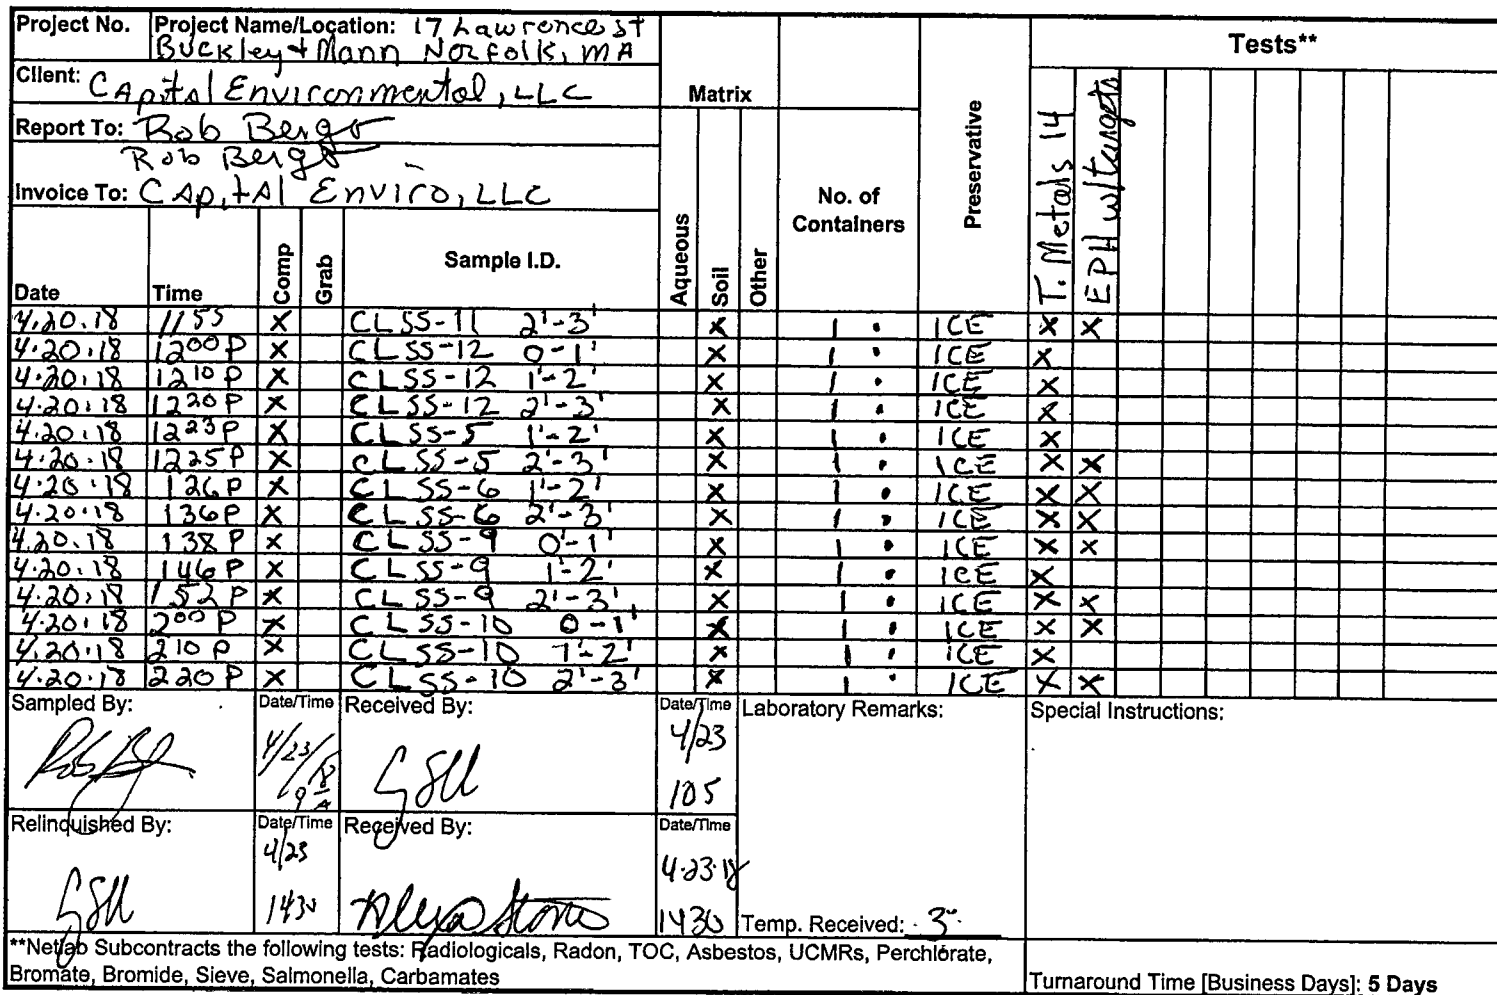 Project No. Project Name/Location: 17 Lawrence st
Buckley + Mann Norfolk, MA
Client: Capital Environmental, LLC
Report To: Rob Bergo
Rob Bergo
Invoice To: Capital Enviro, LLC
Matrix
No. of Containers
Preservative
Tests**
T. Metals 14
EPH w/targets
Date Time Comp Grab Sample I.D. Aqueous Soil Other
4.20.18 1155 X CLSS-11 2'-3' X 1 ICE X X
4.20.18 1200 P X CLSS-12 0-1' X 1 ICE X
4.20.18 1210 P X CLSS-12 1'-2' X 1 ICE X
4.20.18 1220 P X CLSS-12 2'-3' X 1 ICE X
4.20.18 1223 P X CLSS-5 1'-2' X 1 ICE X
4.20.18 1225 P X CLSS-5 2'-3' X 1 ICE X X
4.20.18 126 P X CLSS-6 1'-2' X 1 ICE X X
4.20.18 136 P X CLSS-6 2'-3' X 1 ICE X X
4.20.18 138 P X CLSS-9 0'-1' X 1 ICE X X
4.20.18 146 P X CLSS-9 1'-2' X 1 ICE X
4.20.18 152 P X CLSS-9 2'-3' X 1 ICE X X
4.20.18 200 P X CLSS-10 0-1' X 1 ICE X X
4.20.18 210 P X CLSS-10 1'-2' X 1 ICE X
4.20.18 220 P X CLSS-10 2'-3' X 1 ICE X X
Sampled By: Date/Time Received By: Date/Time Laboratory Remarks: Special Instructions:
4/23/18 4/23
9 A 105
Relinquished By: Date/Time Received By: Date/Time
4/23 4.23.18
1430 Alyssa Stone 1430 Temp. Received: 3°
**Netlab Subcontracts the following tests: Radiologicals, Radon, TOC, Asbestos, UCMRs, Perchlorate,
Bromate, Bromide, Sieve, Salmonella, Carbamates
Turnaround Time [Business Days]: 5 Days